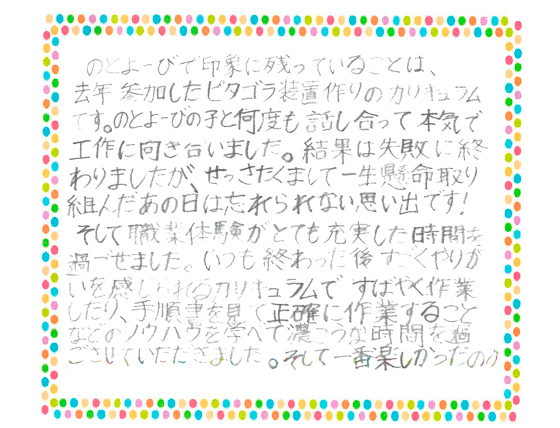 のとよーびで印象に残っていることは、
去年参加したピタゴラ装置作りのカリキュラム
です。のとよーびの子と何度も話し合って本気で
工作に向き合いました。結果は失敗に終
わりましたが、せっさたくまして一生懸命取り
組んだあの日は忘れられない思い出です!
そして職業体験がとても充実した時間を
過ごせました。いつも終わった後すごくやりが
いを感じられるカリキュラムですばやく作業
したり、手順書を見て正確に作業すること
などのノウハウを学べて濃こうな時間を過
ごさせていただきました。そして一番楽しかったのが